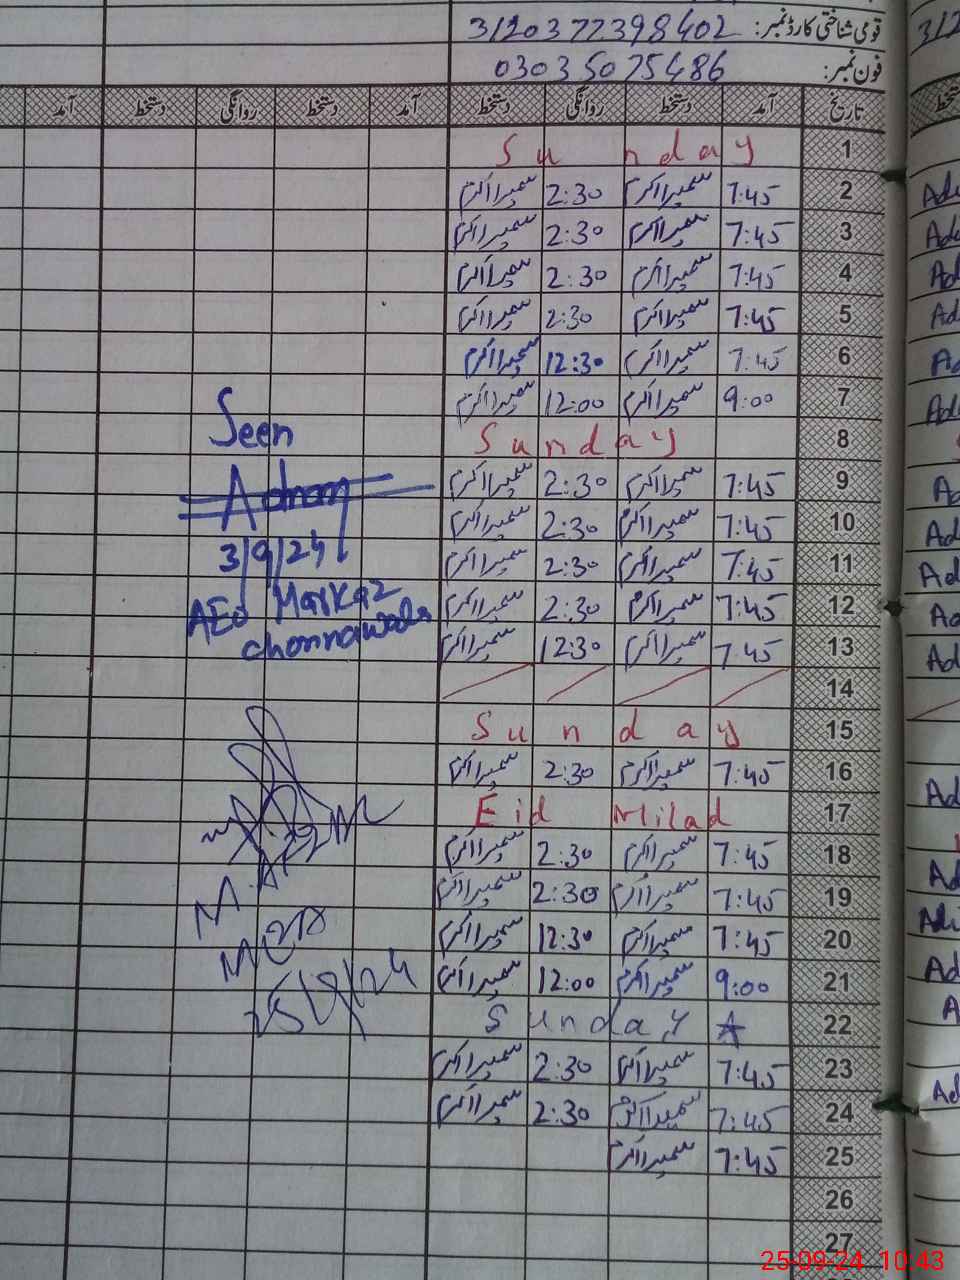 قومی شناختی کارڈ نمبر: 3120372398402
فون نمبر: 03035075486
تاریخ آمد دستخط روانگی دستخط آمد دستخط روانگی دستخط آمد
1 Sunday
2 7:45 سمیرا اکرم 2:30 سمیرا اکرم
3 7:45 سمیرا اکرم 2:30 سمیرا اکرم
4 7:45 سمیرا اکرم 2:30 سمیرا اکرم
5 7:45 سمیرا اکرم 2:30 سمیرا اکرم
6 7:45 سمیرا اکرم 12:30 سمیرا اکرم
7 9:00 سمیرا اکرم 12:00 سمیرا اکرم
8 Sunday
9 7:45 سمیرا اکرم 2:30 سمیرا اکرم
10 7:45 سمیرا اکرم 2:30 سمیرا اکرم
11 7:45 سمیرا اکرم 2:30 سمیرا اکرم
12 7:45 سمیرا اکرم 2:30 سمیرا اکرم
13 7:45 سمیرا اکرم 12:30 سمیرا اکرم
14
15 Sunday
16 7:45 سمیرا اکرم 2:30 سمیرا اکرم
17 Eid Milad
18 7:45 سمیرا اکرم 2:30 سمیرا اکرم
19 7:45 سمیرا اکرم 2:30 سمیرا اکرم
20 7:45 سمیرا اکرم 12:30 سمیرا اکرم
21 9:00 سمیرا اکرم 12:00 سمیرا اکرم
22 Sunday
23 7:45 سمیرا اکرم 2:30 سمیرا اکرم
24 7:45 سمیرا اکرم 2:30 سمیرا اکرم
25 7:45 سمیرا اکرم
26
27
Seen
Adnan
3/9/24
AEO Markaz
25/9/24
25-09-24 10:43